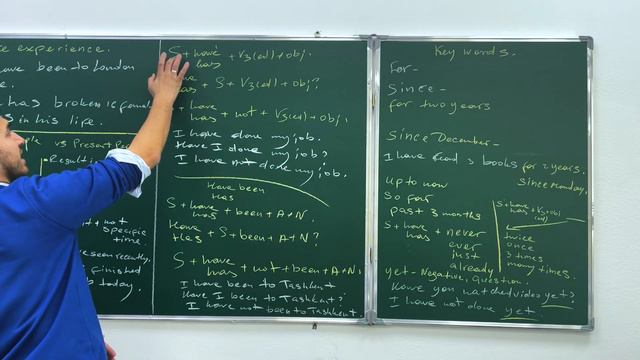 e experience.
ave been to London
e.
has broken 16
s in his life.
ple vs Present Pe
Result
not
specific
time.
seen recently.
finished
today.
S + have
has + V3(ed) + obj.
has + S + V3(ed) + obj?
+ have
has + not + V3(ed) + obj.
I have done my job.
Have I done my job?
I have not done my job.
Have been
Has
S + have
has + been + A + N.
Have
Has + S + been + A + N?
S + have
has + not + been + A + N.
I have been to Tashkent
Have I been to Tashkent?
I have not been to Tashkent.
Key words.
For -
Since -
for two years
Since December -
I have read 3 books for 2 years.
since Monday.
up to now
So far
past 3 months
S + have
has + never
ever
just
already
S + have
has + V3 + obj
(ed)
twice
once
3 times
many times.
yet - Negative, Question.
Have you watched video yet?
I have not done yet.